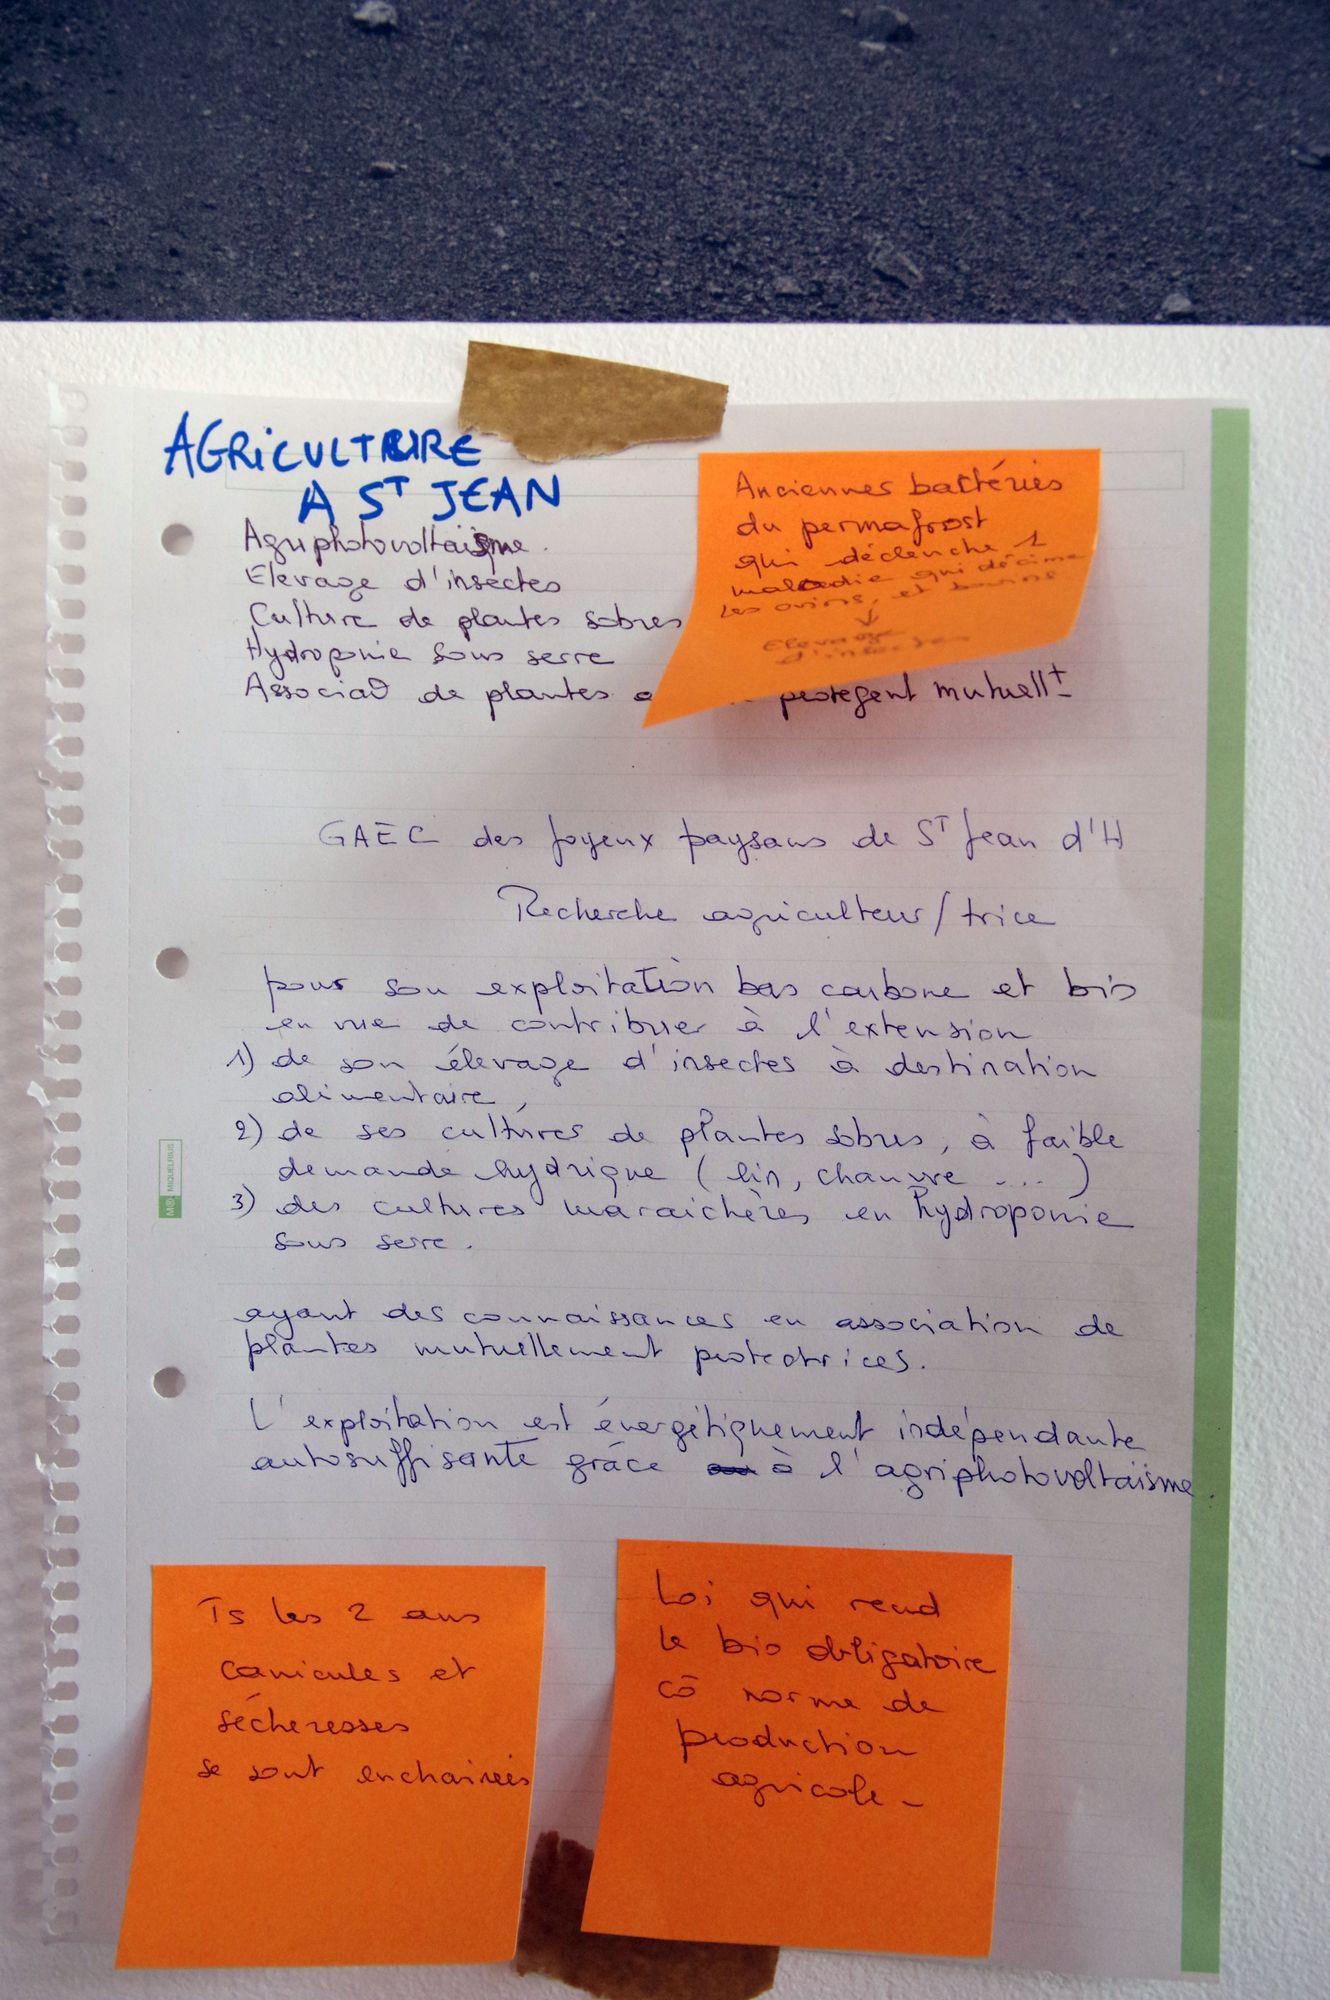 AGRICULTURE
A ST JEAN
Agriphotovoltaïsme.
Elevage d'insectes
Culture de plantes sobres
Hydroponie sous serre
de plantes protègent mutuellt
Anciennes bactéries
du permafrost
qui déclenche 1
maladie qui décime
les ovins, et bovins
↓
Elevage
d'insectes
GAEC des joyeux paysans de ST Jean d'H
Recherche agriculteur/trice
pour son exploitation bas carbone et bio
en vue de contribuer à l'extension
1) de son élevage d'insectes à destination
alimentaire,
2) de ses cultures de plantes sobres, à faible
demande hydrique (lin, chanvre ...)
3) des cultures maraichères en hydroponie
sous serre.
ayant des connaissances en association de
plantes mutuellement protectrices.
L'exploitation est énergétiquement indépendante
autosuffisante grâce à l'agriphotovoltaïsme.
MIQUELRIUS
Ts les 2 ans
canicules et
sécheresses
se sont enchainées
Loi qui rend
le bio obligatoire
cô norme de
production
agricole -